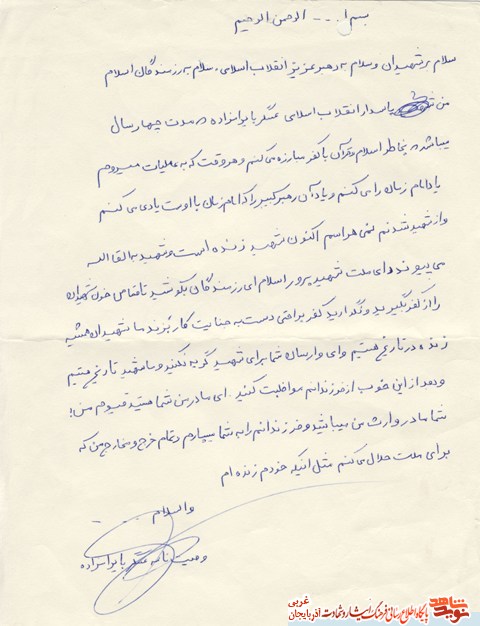 بسم ا... الرحمن الرحیم
سلام بر شهیدان و سلام به رهبر عزیز انقلاب اسلامی. سلام به رزمندگان اسلام
من پاسدار انقلاب اسلامی عسگر بایرامزاده در مدت چهار سال
میباشد بخاطر اسلام و قرآن با کفر مبارزه می کنم و هر وقت که به عملیات میروم
یاد امام زمان را می کنم و یاد آن رهبر کبیر را که امام زمان با اوست یاد می کنم
و از شهید شدنم نمی هراسم اکنون شهید زنده است و شهید به لقا الله
می پیوندد ای ملت شهید پرور اسلام ای رزمندگان بکوشید تا قصاص خون شهیدان
را از کفر بگیرید و نگذارید کفر براحتی دست به جنایت کار بزند ما شهیدان همیشه
زنده در تاریخ هستیم و ای وارسان شما برای شهید گریه نکنید و ما شهید تاریخ هستیم
و بعد از این خوب از فرزندانم مواظبت کنید. ای مادر من شما هستید قیوم من!
شما مادر وارث من میباشید و فرزندانم را به شما میسپارم و تمام خرج و مخارج من که
برای ملت حلال می کنم مثل انیکه خودم زنده ام
والسلام
وصیت نامه عسگر بایرامزاده
نوید شاهد
پایگاه اطلاع رسانی فرهنگ ایثار و شهادت آذربایجان غربی